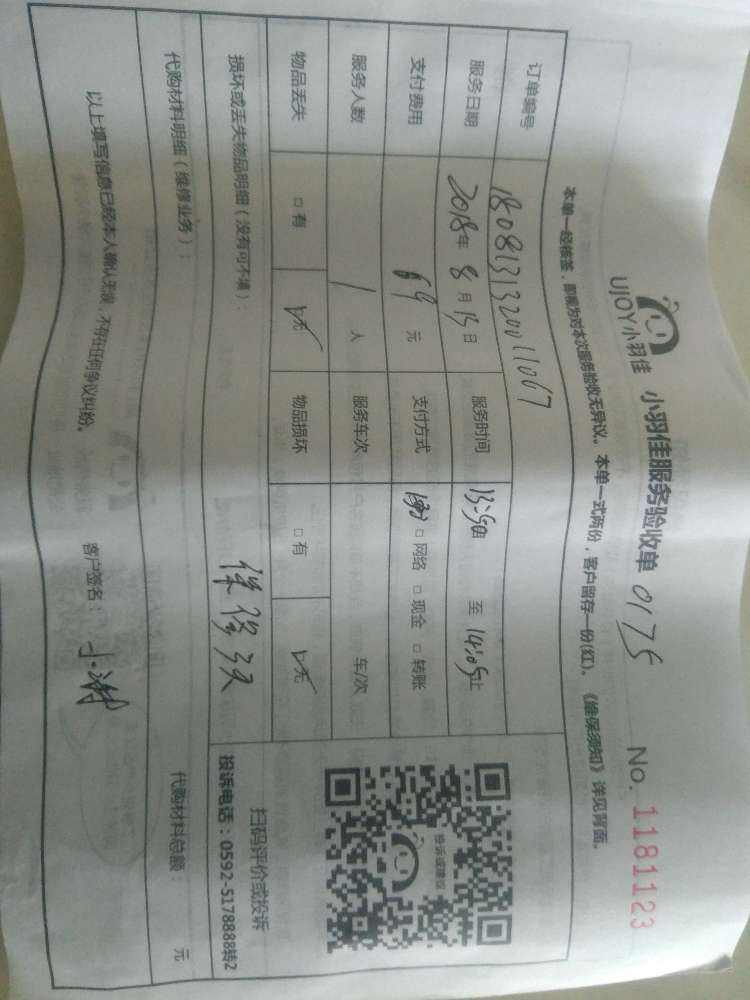 UJOY小羽佳 小羽佳服务验收单 0175 No. 1181123
本单一经核签，即视为对本次服务验收无异议。本单一式两份，客户留存一份(红)。《维保须知》详见背面。
订单编号 1808131320011067
服务日期 2018年 8月 15日 服务时间 13:50由 至 14:05止
支付费用 69元 支付方式 □网络 □现金 □转账
服务人数 1人 服务车次 车/次
物品丢失 □有 □无 物品损坏 □有 □无
损坏或丢失物品明细（没有可不填）：
代购材料明细（维修业务）： 代购材料总额： 元
投诉或建议
扫码评价或投诉
投诉电话：0592-5178888转2
以上填写信息已经本人确认无误，不存在任何争议纠纷。 客户签名：